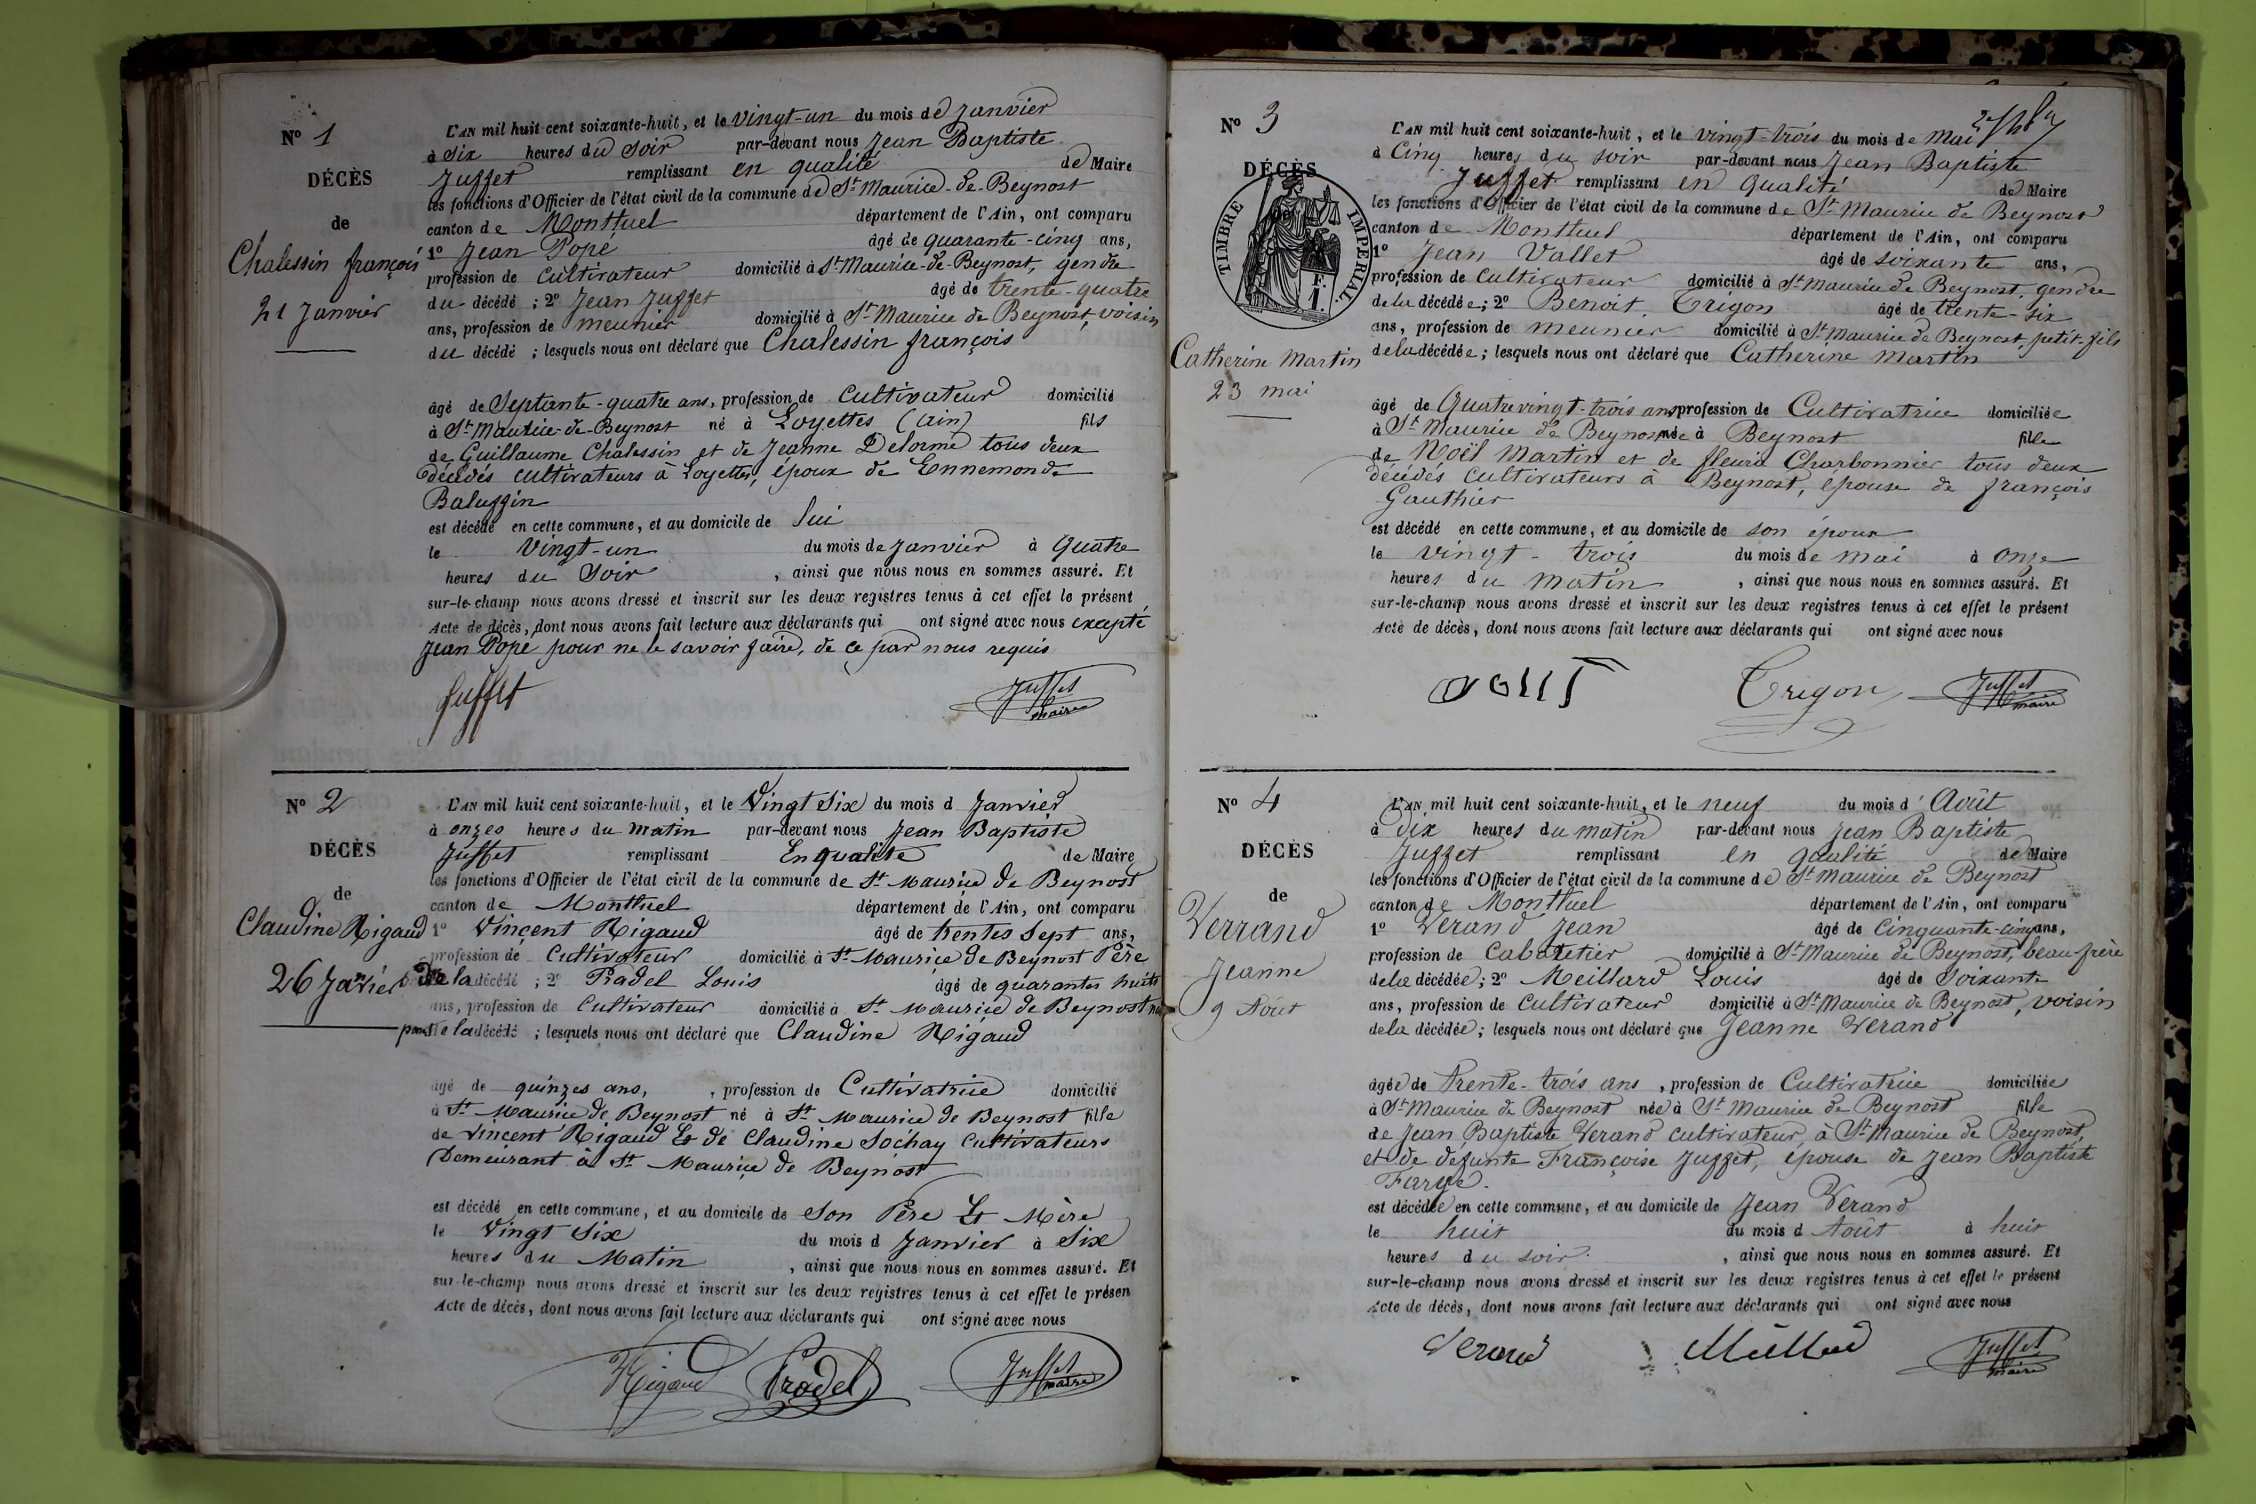 N° 1
DÉCÈS
de
Chalessin françois
21 Janvier
L'AN mil huit cent soixante-huit, et le vingt-un du mois de Janvier
à Six heures du Soir par-devant nous Jean Baptiste
Juffet remplissant en qualité de Maire
les fonctions d'Officier de l'état civil de la commune de St Maurice-de-Beynost
canton de Montluel département de l'Ain, ont comparu
1° Jean Popé âgé de quarante-cinq ans,
profession de Cultivateur domicilié à St Maurice-de-Beynost, gendre
du décédé ; 2° Jean Juffet âgé de trente-quatre
ans, profession de meunier domicilié à St Maurice de Beynost, voisin
du décédé ; lesquels nous ont déclaré que Chalessin françois
âgé de Septante-quatre ans, profession de Cultivateur domicilié
à St Maurice-de-Beynost né à Loyettes (ain) fils
de Guillaume Chalessin et de Jeanne Delorme tous deux
décédés cultivateurs à Loyettes, époux de Ennemonde
Baluffin
est décédé en cette commune, et au domicile de lui
le Vingt-un du mois de Janvier à Quatre
heures du Soir , ainsi que nous nous en sommes assuré. Et
sur-le-champ nous avons dressé et inscrit sur les deux registres tenus à cet effet le présent
Acte de décès, dont nous avons fait lecture aux déclarants qui ont signé avec nous excepté
Jean Popé pour ne le savoir faire, de ce par nous requis
Juffet Juffet
maire
N° 2
DÉCÈS
de
Claudine Rigaud
26 Janvier
L'AN mil huit cent soixante-huit, et le Vingt Six du mois d Janvier
à onzes heures du matin par-devant nous Jean Baptiste
Juffet remplissant En qualité de Maire
les fonctions d'Officier de l'état civil de la commune de St Maurice de Beynost
canton de Montluel département de l'Ain, ont comparu
1° Vincent Rigaud âgé de trentes Sept ans,
profession de Cultivateur domicilié à St Maurice de Beynost Père
de la décédé ; 2° Pradel Louis âgé de quarantes huits
ans, profession de Cultivateur domicilié à St Maurice de Beynost
de la décédé ; lesquels nous ont déclaré que Claudine Rigaud
âgé de quinzes ans, , profession de Cultivatrice domicilié
à St Maurice de Beynost né à St Maurice de Beynost fille
de Vincent Rigaud Et de Claudine Sochay Cultivateurs
Demeurant à St Maurice de Beynost
est décédé en cette commune, et au domicile de Son Père Et Mère
le Vingt Six du mois d Janvier à Six
heures du Matin , ainsi que nous nous en sommes assuré. Et
sur-le-champ nous avons dressé et inscrit sur les deux registres tenus à cet effet le présen
Acte de décès, dont nous avons fait lecture aux déclarants qui ont signé avec nous
Rigaud Pradel Juffet
maire
N° 3
DÉCÈS
TIMBRE IMPÉRIAL
F.
1.
Catherine Martin
23 mai
L'AN mil huit cent soixante-huit, et le vingt-trois du mois de Mai
à Cinq heures du soir par-devant nous Jean Baptiste
Juffet remplissant en qualité de Maire
les fonctions d'Officier de l'état civil de la commune de St Maurice de Beynost
canton de Montluel département de l'Ain, ont comparu
1° Jean Vallet âgé de soixante ans,
profession de Cultivateur domicilié à St Maurice de Beynost, gendre
de la décédée ; 2° Benoit Trigon âgé de trente-six
ans, profession de meunier domicilié à St Maurice de Beynost, petit-fils
de la décédée ; lesquels nous ont déclaré que Catherine Martin
âgé de Quatrevingt-trois ans profession de Cultivatrice domiciliée
à St Maurice de Beynost née à Beynost fille
de Noël Martin et de fleurie Charbonnier tous deux
décédés cultivateurs à Beynost, épouse de françois
Gauthier
est décédé en cette commune, et au domicile de son époux
le vingt-trois du mois de mai à onze
heures du matin , ainsi que nous nous en sommes assuré. Et
sur-le-champ nous avons dressé et inscrit sur les deux registres tenus à cet effet le présent
Acte de décès, dont nous avons fait lecture aux déclarants qui ont signé avec nous
Trigon Juffet
maire
N° 4
DÉCÈS
de
Verrand
Jeanne
9 Août
L'AN mil huit cent soixante-huit, et le neuf du mois d' Août
à Dix heures du matin par-devant nous Jean Baptiste
Juffet remplissant en qualité de Maire
les fonctions d'Officier de l'état civil de la commune de St Maurice de Beynost
canton de Montluel département de l'Ain, ont comparu
1° Verand Jean âgé de Cinquante-cinq ans,
profession de Cabaretier domicilié à St Maurice de Beynost, beau frère
de la décédée ; 2° Meillard Louis âgé de Soixante
ans, profession de Cultivateur domicilié à St Maurice de Beynost, voisin
de la décédée ; lesquels nous ont déclaré que Jeanne Verand
âgée de Trente-trois ans , profession de Cultivatrice domiciliée
à St Maurice de Beynost née à St Maurice de Beynost fille
de Jean Baptiste Verand cultivateur à St Maurice de Beynost,
et de defunte Françoise Juffet, épouse de Jean Baptiste
Farge.
est décédée en cette commune, et au domicile de Jean Verand
le huit du mois d Août à huit
heures du soir. , ainsi que nous nous en sommes assuré. Et
sur-le-champ nous avons dressé et inscrit sur les deux registres tenus à cet effet le présent
Acte de décès, dont nous avons fait lecture aux déclarants qui ont signé avec nous
Verand Meillard Juffet
maire